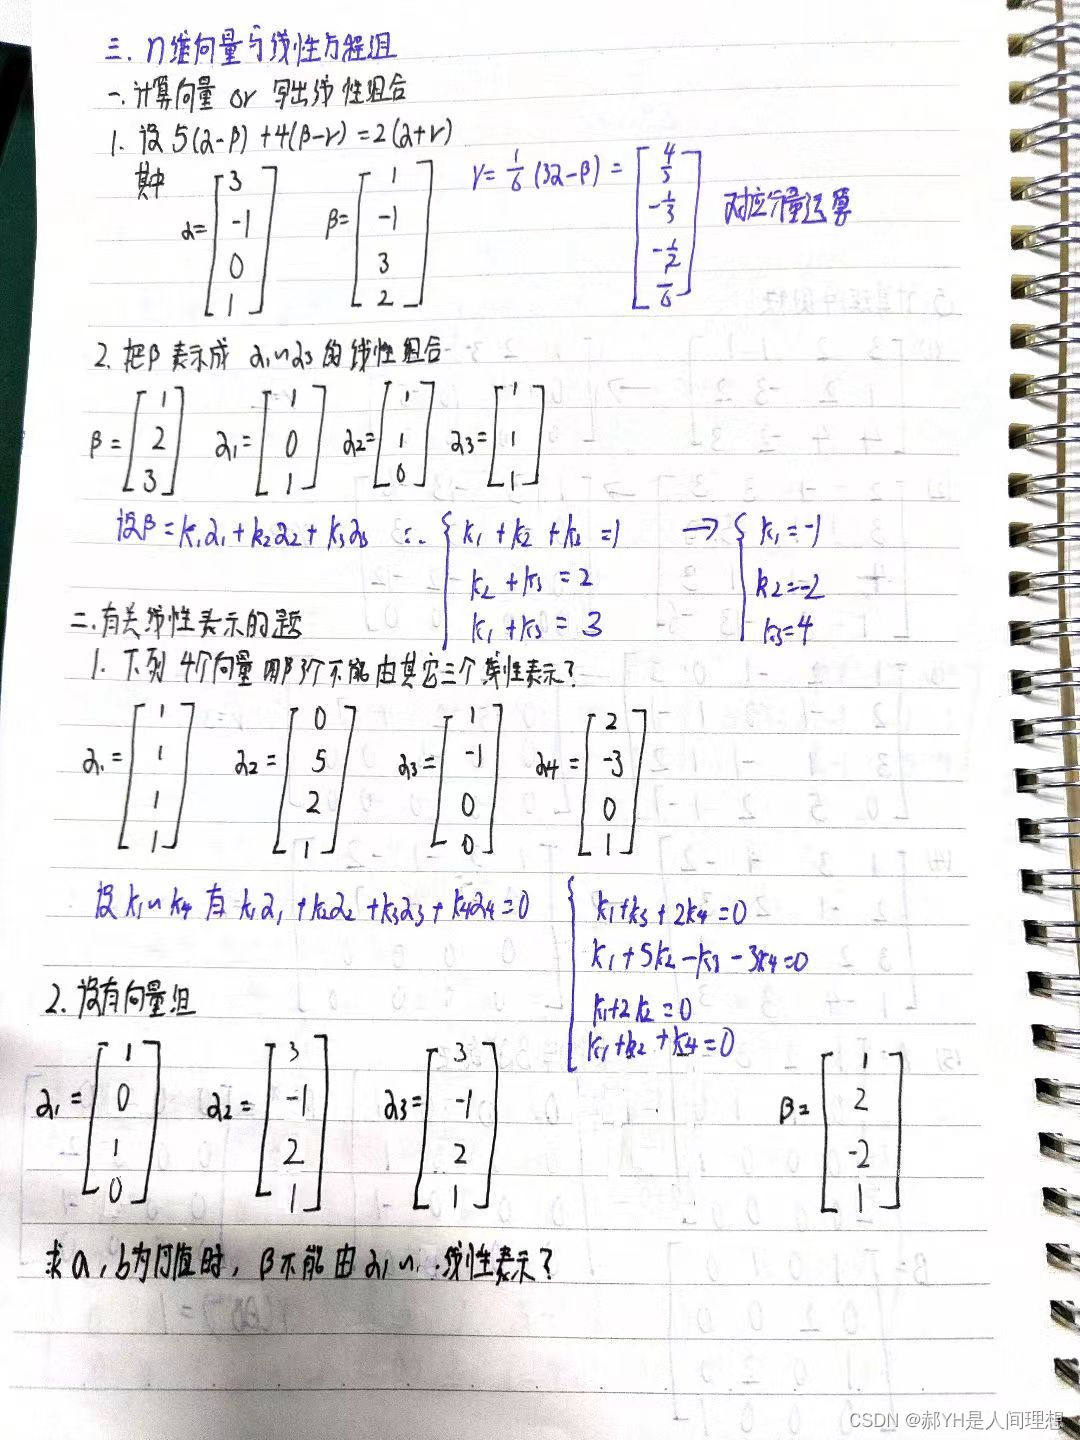 三. n维向量与线性方程组
一. 计算向量 or 写出线性组合
1. 设 5(α-β) + 4(β-γ) = 2(α+γ)
其中 α= [3 -1 0 1] β= [1 -1 3 2] γ = 1/6 (3α-β) = [4/3 -1/3 -1/2 1/6] 对应分量运算
2. 把β表示成 α1~α3 的线性组合
β = [1 2 3] α1= [1 0 1] α2= [1 1 0] α3= [1 1 1]
设β = k1α1 + k2α2 + k3α3 ∴ { k1 + k2 + k3 = 1 → { k1=-1
k2 + k3 = 2 k2=-2
k1 + k3 = 3 k3=4
二. 有关线性表示的题
1. 下列 4个向量 那个不能由其它三个线性表示?
α1= [1 1 1 1] α2= [0 5 2 1] α3= [1 -1 0 0] α4= [2 -3 0 1]
设 k1~k4 有 k1α1 + k2α2 + k3α3 + k4α4=0 { k1+k3+2k4=0
k1+5k2-k3-3k4=0
k1+2k2=0
k1+k2+k4=0
2. 设有向量组
α1= [1 0 1 0] α2= [3 -1 2 1] α3= [3 -1 2 1] β= [1 2 -2 1]
求 a, b为何值时, β不能由 α1~.. 线性表示?
CSDN @郝YH是人间理想